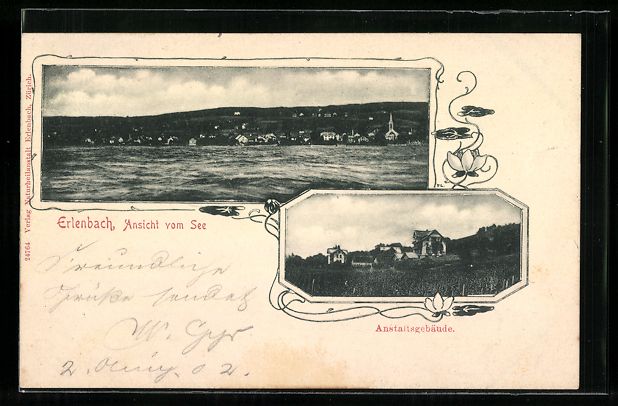 Erlenbach, Ansicht vom See
Anstaltsgebäude.
24764 Verlag Naturheilanstalt Erlenbach, Zürich.
Freundliche
Grüße sendet
W.
2. 02.